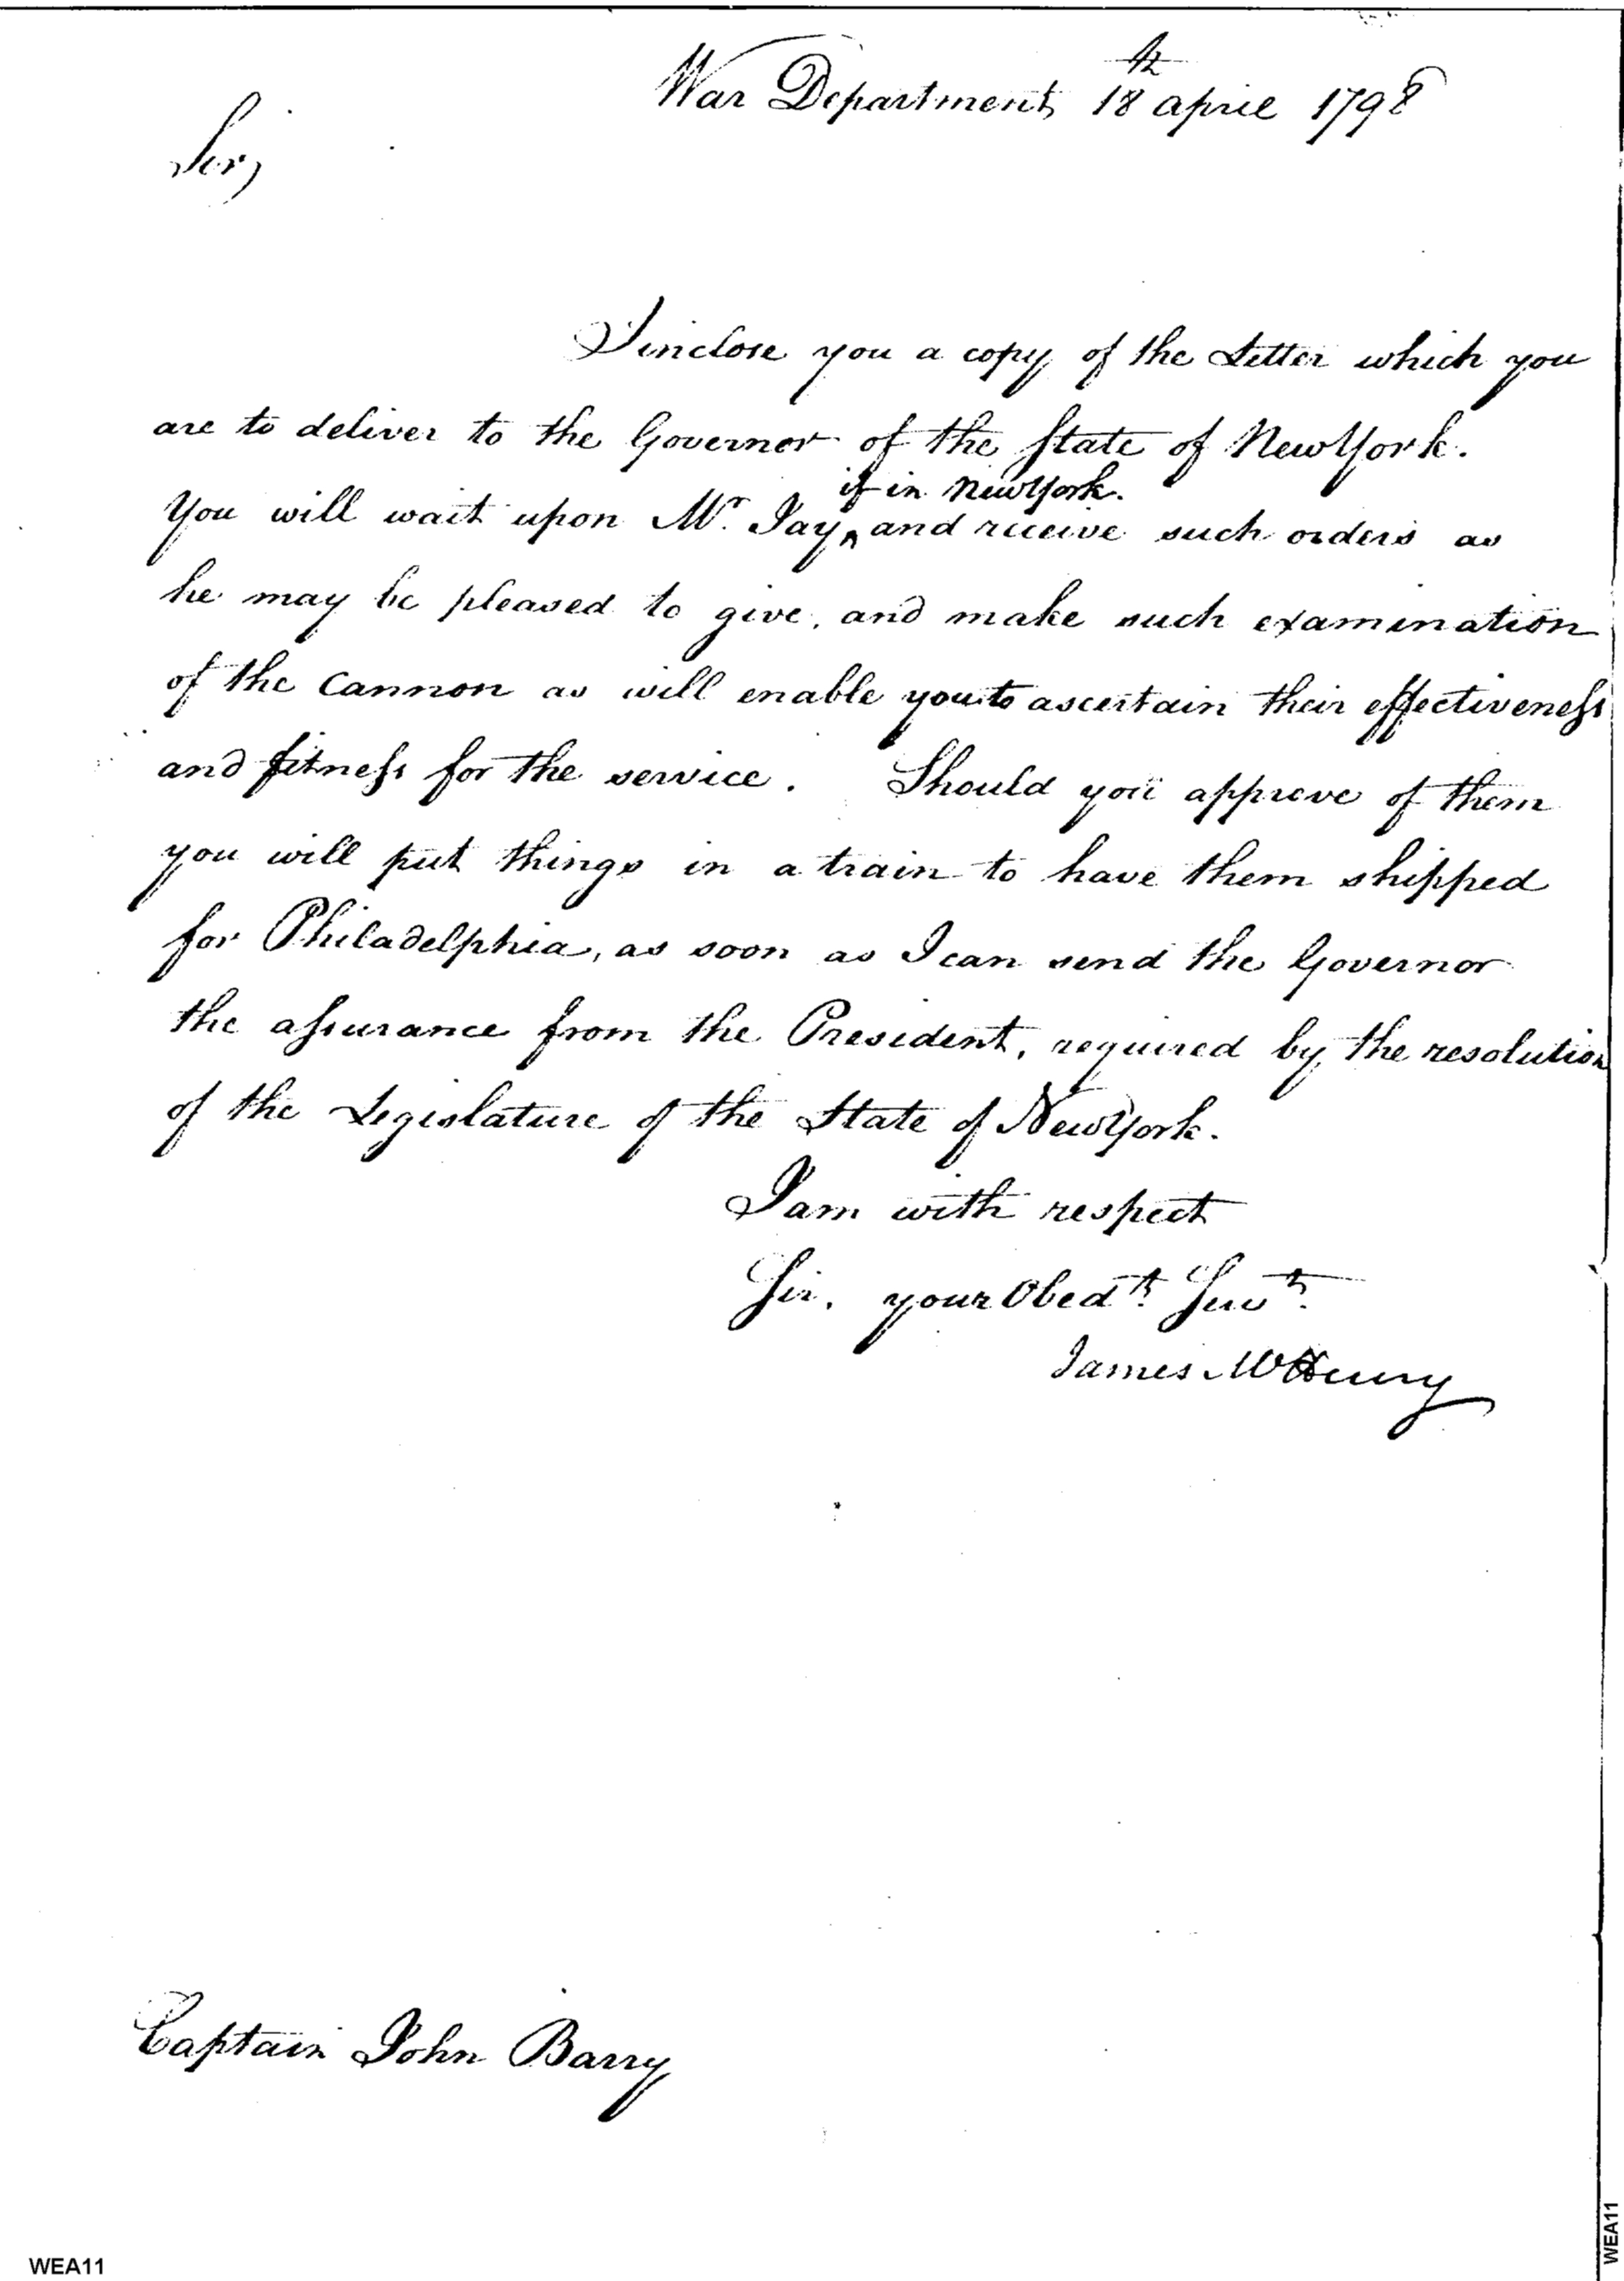 War Department 18th april 1798
Sir,
I inclose you a copy of the Letter which you
are to deliver to the Governor of the State of New York.
if in New York.
You will wait upon Mr. Jay, ^ and receive such orders as
he may be pleased to give, and make such examination
of the Cannon as will enable you to ascertain their effectiveness
and fitness for the service. Should you approve of them
you will put things in a train to have them shipped
for Philadelphia, as soon as I can send the Governor
the assurance from the President, required by the resolution
of the Legislature of the State of New York.
I am with respect
Sir. your Obedt. Servt.
James McHenry
Captain John Barry
WEA11
WEA11